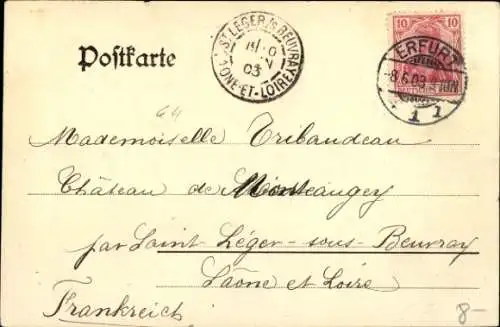 Postkarte
ST LÉGER S BEUVRAY
10
03
SAONE-ET-LOIRE
10
ERFURT
-8.6.03
1 1
64
Mademoiselle Tribaudeau
Château de Monteaugey
par Saint-Léger-sous-Beuvray
Sâone et Loire
Frankreich
8-